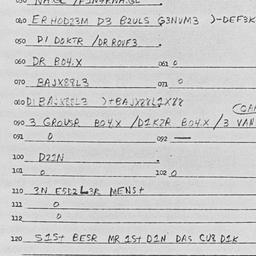 040 ER HODZ3M D3 BZULS G3NVM3 )-DEF3K
050 D1 DOKTR /DR ROVF3 .
060 DR BO4.X 061 0
070 BAJX88L3 071 0
080 D1 BAJX88L3 )+BAJX88L1X88
(CAR
090 3 GROUSR BO4X /D1KZR BO4.X /3 VAN
091 0 092 —
100 DZ1N
101 0 102 0
110 3N ESDZL3R MENS+
111 0
112 0
120 S1S+ BESR MR 1S+ D1N DAS CU8 D1K